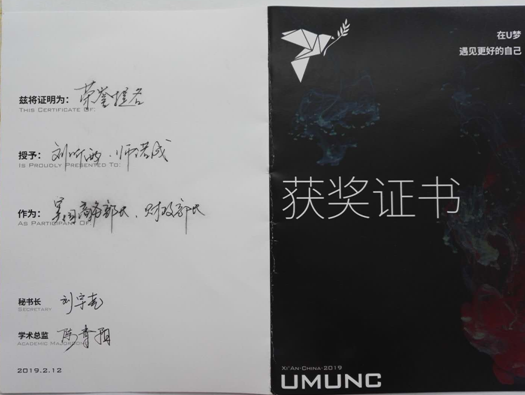 兹将证明为: 荣誉提名
THIS CERTIFICATE OF:
授予: 刘昕 · 师浩成
IS PROUDLY PRESENTED TO:
作为: 美国商务部长、财政部长
AS PARTICIPANT OF:
秘书长 刘宇尧
SECRETARY
学术总监 陈青翔
ACADEMIC
2019.2.12
在U梦
遇见更好的自己
获奖证书
XI'AN·CHINA·2019
UMUNC